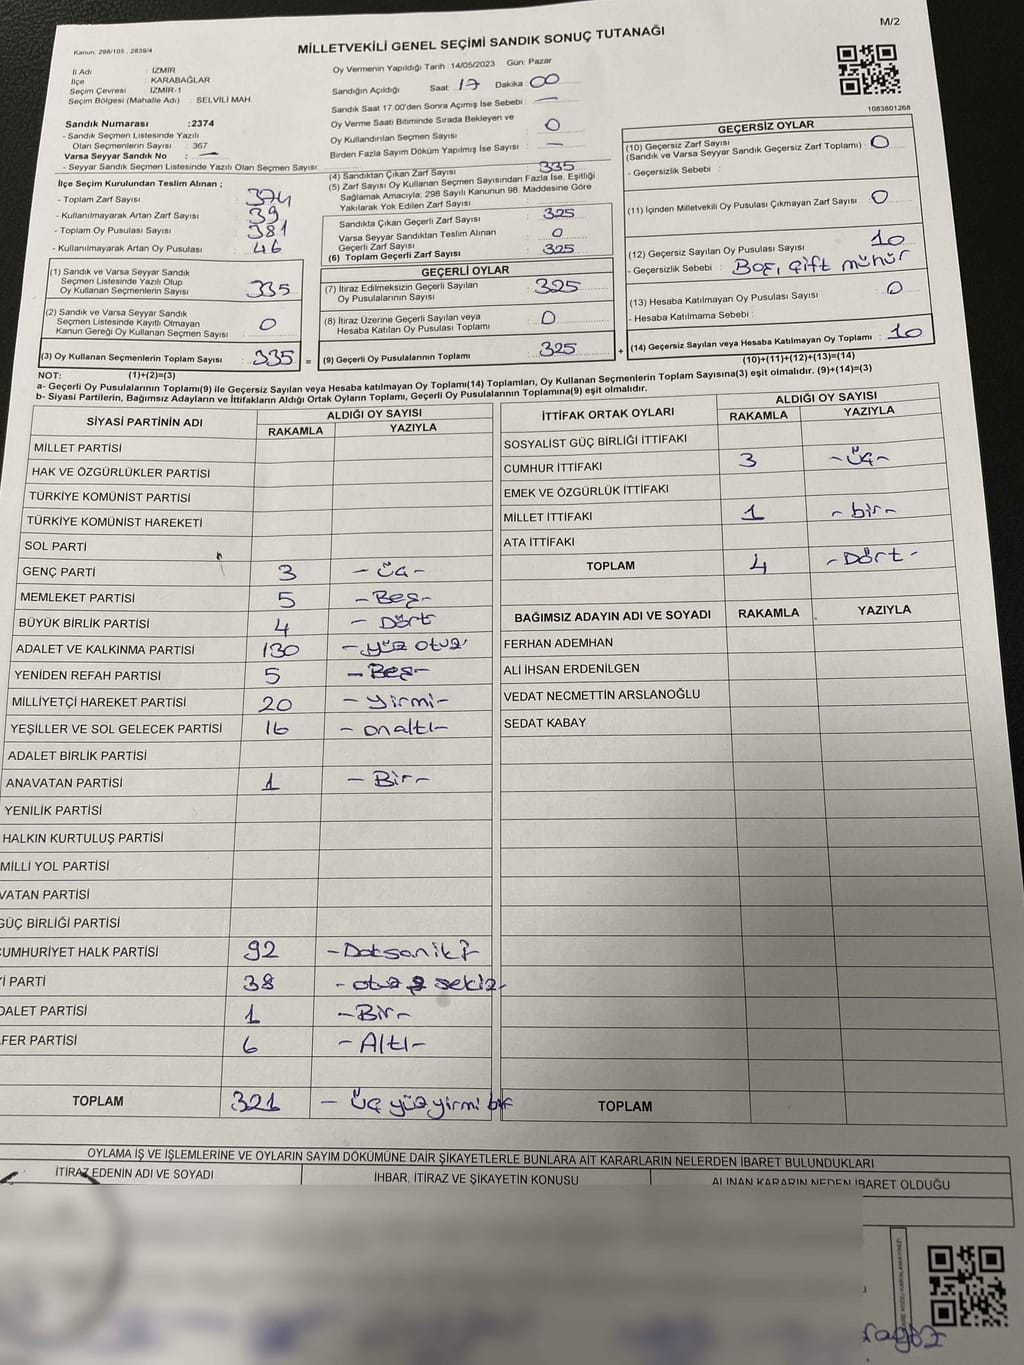 M/2
Kanun: 298/105 , 2839/4
MİLLETVEKİLİ GENEL SEÇİMİ SANDIK SONUÇ TUTANAĞI
İl Adı : İZMİR
İlçe : KARABAĞLAR
Seçim Çevresi : İZMİR-1
Seçim Bölgesi (Mahalle Adı) : SELVİLİ MAH
Sandık Numarası :2374
- Sandık Seçmen Listesinde Yazılı
Olan Seçmenlerin Sayısı : 367
Varsa Seyyar Sandık No : —
- Seyyar Sandık Seçmen Listesinde Yazılı Olan Seçmen Sayısı:
İlçe Seçim Kurulundan Teslim Alınan ;
- Toplam Zarf Sayısı : 374
- Kullanılmayarak Artan Zarf Sayısı : 39
- Toplam Oy Pusulası Sayısı : 381
- Kullanılmayarak Artan Oy Pusulası : 46
(1) Sandık ve Varsa Seyyar Sandık
Seçmen Listesinde Yazılı Olup
Oy Kullanan Seçmenlerin Sayısı : 335
(2) Sandık ve Varsa Seyyar Sandık
Seçmen Listesinde Kayıtlı Olmayan
Kanun Gereği Oy Kullanan Seçmen Sayısı : 0
(3) Oy Kullanan Seçmenlerin Toplam Sayısı : 335 =
(1)+(2)=(3)
Oy Vermenin Yapıldığı Tarih : 14/05/2023 Gün: Pazar
Sandığın Açıldığı Saat: 17 Dakika: 00
Sandık Saat 17.00'den Sonra Açımış İse Sebebi : —
Oy Verme Saati Bitiminde Sırada Bekleyen ve
Oy Kullandırılan Seçmen Sayısı : 0
Birden Fazla Sayım Döküm Yapılmış İse Sayısı : —
(4) Sandıktan Çıkan Zarf Sayısı : 335
(5) Zarf Sayısı Oy Kullanan Seçmen Sayısından Fazla İse, Eşitliği
Sağlamak Amacıyla, 298 Sayılı Kanunun 98. Maddesine Göre
Yakılarak Yok Edilen Zarf Sayısı :
Sandıkta Çıkan Geçerli Zarf Sayısı : 325
Varsa Seyyar Sandıktan Teslim Alınan
Geçerli Zarf Sayısı : 0
(6) Toplam Geçerli Zarf Sayısı : 325
GEÇERLİ OYLAR
(7) İtiraz Edilmeksizin Geçerli Sayılan
Oy Pusulalarının Sayısı : 325
(8) İtiraz Üzerine Geçerli Sayılan veya
Hesaba Katılan Oy Pusulası Toplamı : 0
(9) Geçerli Oy Pusulalarının Toplamı : 325 +
1083801268
GEÇERSİZ OYLAR
(10) Geçersiz Zarf Sayısı
(Sandık ve Varsa Seyyar Sandık Geçersiz Zarf Toplamı) : 0
- Geçersizlik Sebebi :
(11) İçinden Milletvekili Oy Pusulası Çıkmayan Zarf Sayısı : 0
(12) Geçersiz Sayılan Oy Pusulası Sayısı : 10
- Geçersizlik Sebebi : Boş, çift mühür
(13) Hesaba Katılmayan Oy Pusulası Sayısı : 0
- Hesaba Katılmama Sebebi :
(14) Geçersiz Sayılan veya Hesaba Katılmayan Oy Toplamı : 10
(10)+(11)+(12)+(13)=(14)
NOT:
a- Geçerli Oy Pusulalarının Toplamı(9) ile Geçersiz Sayılan veya Hesaba katılmayan Oy Toplamı(14) Toplamları, Oy Kullanan Seçmenlerin Toplam Sayısına(3) eşit olmalıdır. (9)+(14)=(3)
b- Siyasi Partilerin, Bağımsız Adayların ve İttifakların Aldığı Ortak Oyların Toplamı, Geçerli Oy Pusulalarının Toplamına(9) eşit olmalıdır.
SİYASİ PARTİNİN ADI ALDIĞI OY SAYISI
RAKAMLA YAZIYLA
MİLLET PARTİSİ
HAK VE ÖZGÜRLÜKLER PARTİSİ
TÜRKİYE KOMÜNİST PARTİSİ
TÜRKİYE KOMÜNİST HAREKETİ
SOL PARTİ
GENÇ PARTİ 3 - Üç -
MEMLEKET PARTİSİ 5 - Beş -
BÜYÜK BİRLİK PARTİSİ 4 - Dört
ADALET VE KALKINMA PARTİSİ 130 - yüz otuz
YENİDEN REFAH PARTİSİ 5 - Beş -
MİLLİYETÇİ HAREKET PARTİSİ 20 - Yirmi -
YEŞİLLER VE SOL GELECEK PARTİSİ 16 - onaltı -
ADALET BİRLİK PARTİSİ
ANAVATAN PARTİSİ 1 - Bir -
YENİLİK PARTİSİ
HALKIN KURTULUŞ PARTİSİ
MİLLİ YOL PARTİSİ
VATAN PARTİSİ
GÜÇ BİRLİĞİ PARTİSİ
UMHURİYET HALK PARTİSİ 92 - Doksaniki -
İ PARTİ 38 - otuz sekiz -
DALET PARTİSİ 1 - Bir -
FER PARTİSİ 6 - Altı -
TOPLAM 321 - Üç yüz yirmi bir
İTTİFAK ORTAK OYLARI ALDIĞI OY SAYISI
RAKAMLA YAZIYLA
SOSYALİST GÜÇ BİRLİĞİ İTTİFAKI
CUMHUR İTTİFAKI 3 - Üç -
EMEK VE ÖZGÜRLÜK İTTİFAKI
MİLLET İTTİFAKI 1 - bir -
ATA İTTİFAKI
TOPLAM 4 - Dört -
BAĞIMSIZ ADAYIN ADI VE SOYADI RAKAMLA YAZIYLA
FERHAN ADEMHAN
ALİ İHSAN ERDENİLGEN
VEDAT NECMETTİN ARSLANOĞLU
SEDAT KABAY
TOPLAM
OYLAMA İŞ VE İŞLEMLERİNE VE OYLARIN SAYIM DÖKÜMÜNE DAİR ŞİKAYETLERLE BUNLARA AİT KARARLARIN NELERDEN İBARET BULUNDUKLARI
İTİRAZ EDENİN ADI VE SOYADI İHBAR, İTİRAZ VE ŞİKAYETİN KONUSU ALINAN KARARIN NEDEN İBARET OLDUĞU